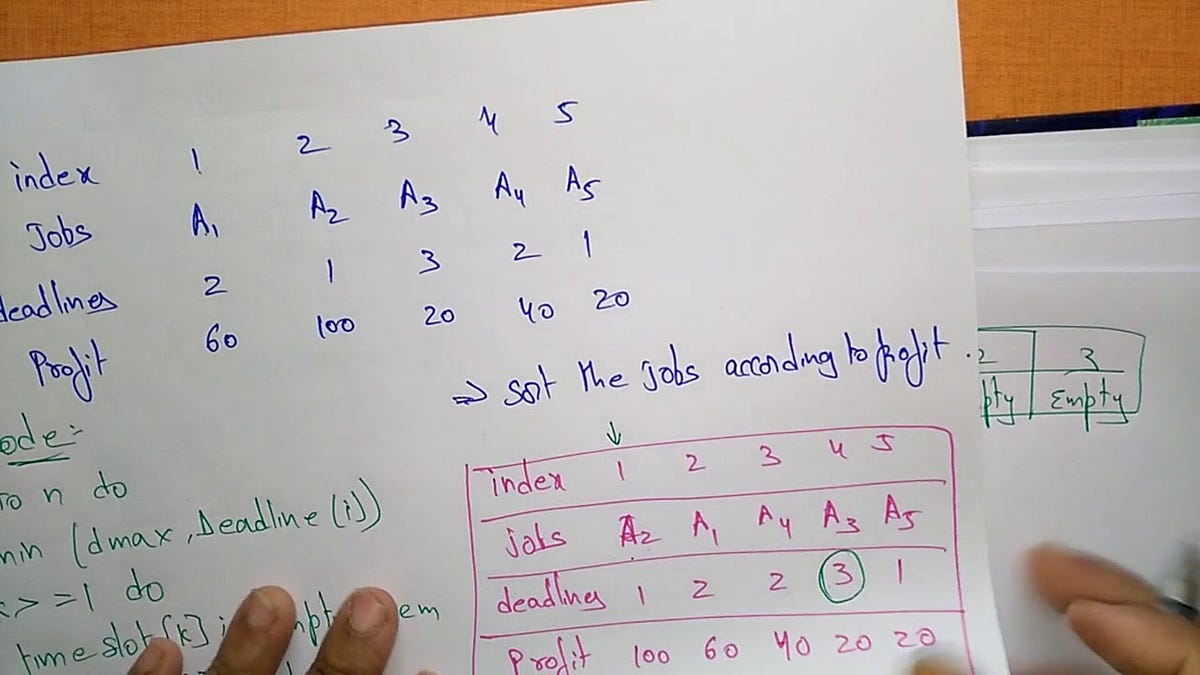 index 1 2 3 4 5
Jobs A1 A2 A3 A4 A5
deadlines 2 1 3 2 1
Profit 60 100 20 40 20
=> sort the jobs according to profit.
2 3
Empty
ode:-
To n do
min (dmax, Deadline(i))
k>=1 do
time slot[k]
↓
index 1 2 3 4 5
jobs A2 A1 A4 A3 A5
deadlines 1 2 2 3 1
Profit 100 60 40 20 20